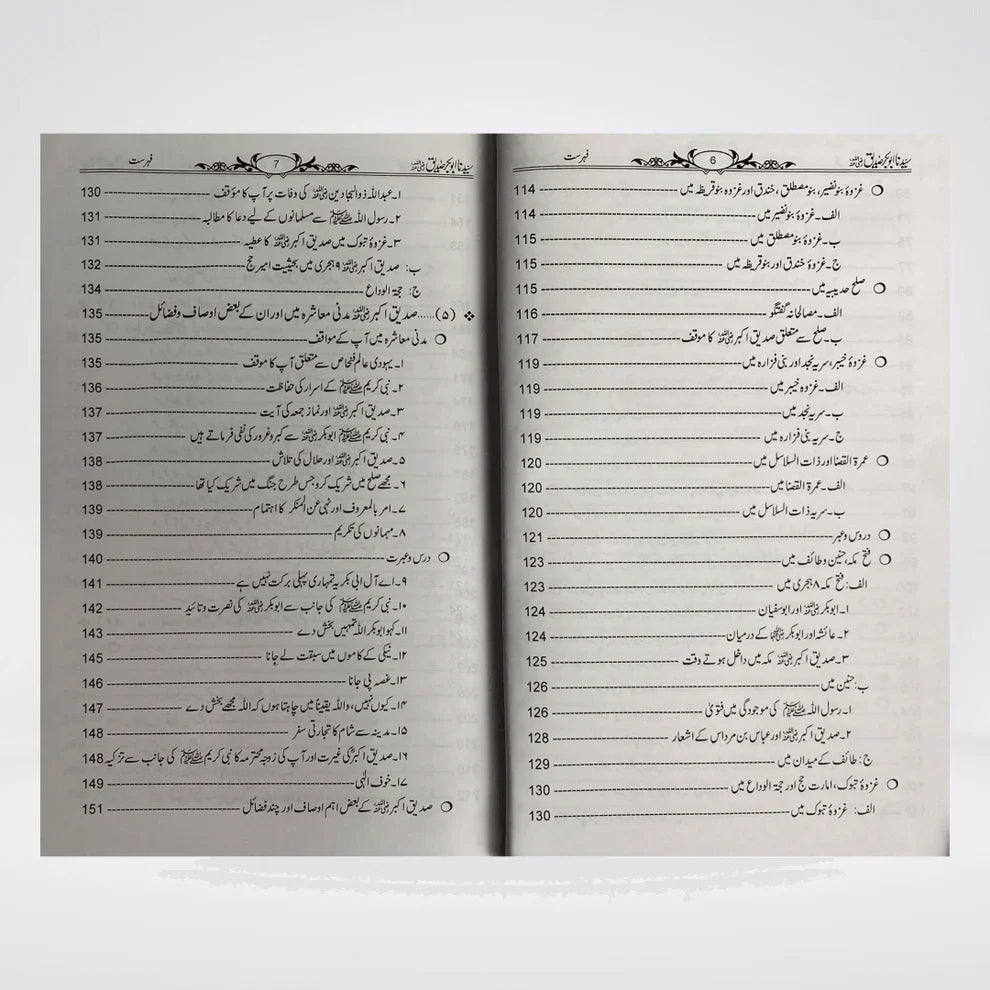 سیدنا ابوبکر صدیق رضی اللہ عنہ 6 فہرست
○ غزوۂ بنو نضیر، بنو مصطلق، خندق اور غزوہ بنو قریظہ میں ---------- 114
الف۔ غزوۂ بنو نضیر میں ---------- 114
ب۔ غزوہ بنو مصطلق میں ---------- 115
ج۔ غزوۂ خندق اور بنو قریظہ میں ---------- 115
○ صلح حدیبیہ میں ---------- 115
الف۔ مصالحانہ گفتگو ---------- 116
ب۔ صلح سے متعلق صدیق اکبر رضی اللہ عنہ کا موقف ---------- 117
○ غزوۂ خیبر، سریہ نجد اور بنی فزارہ میں ---------- 119
الف۔ غزوہ خیبر میں ---------- 119
ب۔ سریہ نجد میں ---------- 119
ج۔ سریہ بنی فزارہ میں ---------- 119
○ عمرۃ القضا اور ذات السلاسل میں ---------- 120
الف۔ عمرۃ القضا میں ---------- 120
ب۔ سریہ ذات السلاسل میں ---------- 120
○ دروس و عبر ---------- 121
○ فتح مکہ، حنین و طائف میں ---------- 123
الف: فتح مکہ ۸ ہجری میں ---------- 123
۱۔ ابوبکر رضی اللہ عنہ اور ابوسفیان ---------- 124
۲۔ عائشہ اور ابوبکر رضی اللہ عنہما کے درمیان ---------- 124
۳۔ صدیق اکبر رضی اللہ عنہ مکہ میں داخل ہوتے وقت ---------- 125
ب: حنین میں ---------- 126
۱۔ رسول اللہ ﷺ کی موجودگی میں فتویٰ ---------- 126
۲۔ صدیق اکبر رضی اللہ عنہ اور عباس بن مرداس کے اشعار ---------- 128
ج: طائف کے میدان میں ---------- 129
○ غزوۂ تبوک، امارت حج اور حجۃ الوداع میں ---------- 130
الف: غزوۂ تبوک میں ---------- 130
سیدنا ابوبکر صدیق رضی اللہ عنہ 7 فہرست
۱۔ عبداللہ ذوالبجادین رضی اللہ عنہ کی وفات پر آپ کا مؤقف ---------- 130
۲۔ رسول اللہ ﷺ سے مسلمانوں کے لیے دعا کا مطالبہ ---------- 131
۳۔ غزوۂ تبوک میں صدیق اکبر رضی اللہ عنہ کا عطیہ ---------- 131
ب: صدیق اکبر رضی اللہ عنہ ۹ ہجری میں بحیثیت امیر حج ---------- 132
ج: حجۃ الوداع ---------- 134
❖ (۵)...... صدیق اکبر رضی اللہ عنہ مدنی معاشرہ میں اور ان کے بعض اوصاف و فضائل ---------- 135
○ مدنی معاشرہ میں آپ کے مواقف ---------- 135
۱۔ یہودی عالم فنحاص سے متعلق آپ کا موقف ---------- 135
۲۔ نبی کریم ﷺ کے اسرار کی حفاظت ---------- 136
۳۔ صدیق اکبر رضی اللہ عنہ اور نماز جمعہ کی آیت ---------- 137
۴۔ نبی کریم ﷺ ابوبکر رضی اللہ عنہ سے کبر و غرور کی نفی فرماتے ہیں ---------- 137
۵۔ صدیق اکبر رضی اللہ عنہ اور حلال کی تلاش ---------- 138
۶۔ مجھے صلح میں شریک کرو جس طرح جنگ میں شریک کیا تھا ---------- 138
۷۔ امر بالمعروف اور نہی عن المنکر کا اہتمام ---------- 139
۸۔ مہمانوں کی تکریم ---------- 139
○ درس و عبرت ---------- 140
۹۔ اے آل ابی بکر یہ تمہاری پہلی برکت نہیں ہے ---------- 141
۱۰۔ نبی کریم ﷺ کی جانب سے ابوبکر رضی اللہ عنہ کی نصرت و تائید ---------- 142
۱۱۔ کہو ابوبکر اللہ تمہیں بخش دے ---------- 143
۱۲۔ نیکی کے کاموں میں سبقت لے جانا ---------- 145
۱۳۔ غصہ پی جانا ---------- 146
۱۴۔ کیوں نہیں، واللہ یقیناً میں چاہتا ہوں کہ اللہ مجھے بخش دے ---------- 147
۱۵۔ مدینہ سے شام کا تجارتی سفر ---------- 148
۱۶۔ صدیق اکبرؓ کی غیرت اور آپ کی زوجہ محترمہ کا نبی کریم ﷺ کی جانب سے تزکیہ 148
۱۷۔ خوف الٰہی ---------- 149
○ صدیق اکبر رضی اللہ عنہ کے بعض اہم اوصاف اور چند فضائل ---------- 151